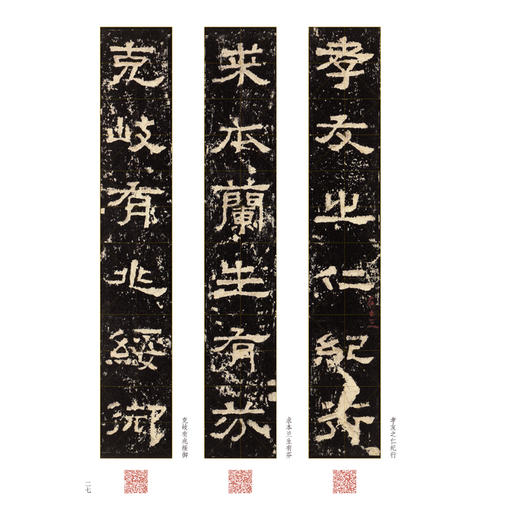 孝友之仁紀行
来本蘭生有芬
克岐有兆綏御
孝友之仁纪行
来本兰生有芬
克岐有兆绥御
二七